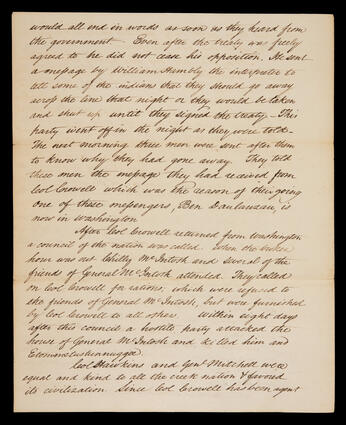 would all end in words as soon as they heard from
the government - Even after the treaty was freely
agreed to he did not cease his opposition. He sent
a message by William Hambly the interpreter to
tell some of the indians that they should go away
across the line that night or they would be taken
and shut up until they signed the treaty. - This
party went off in the night as they were told.
The next morning three men were sent after them
to know why they had gone away. They told
these men the message they had received from
Col Crowell which was the reason of their going
one of these messengers, Ben is
now in Washington
After Col Crowell returned from Washington
a council of the nation was called. When the
hour was out Chilly McIntosh and several of the
friends of General McIntosh attended. They called
on Col Crowell for rations, which were refused to
the friends of General McIntosh, but were furnished
by Col Crowell to all others. Within eight days
after this council a hostile party attacked the
house of General McIntosh and killed him and
Etommetustunnuggee.
Col Hawkins and Genl Mitchell were
equal and kind to all the creek nation & favored
its civilization. Since Col Crowell has been agent